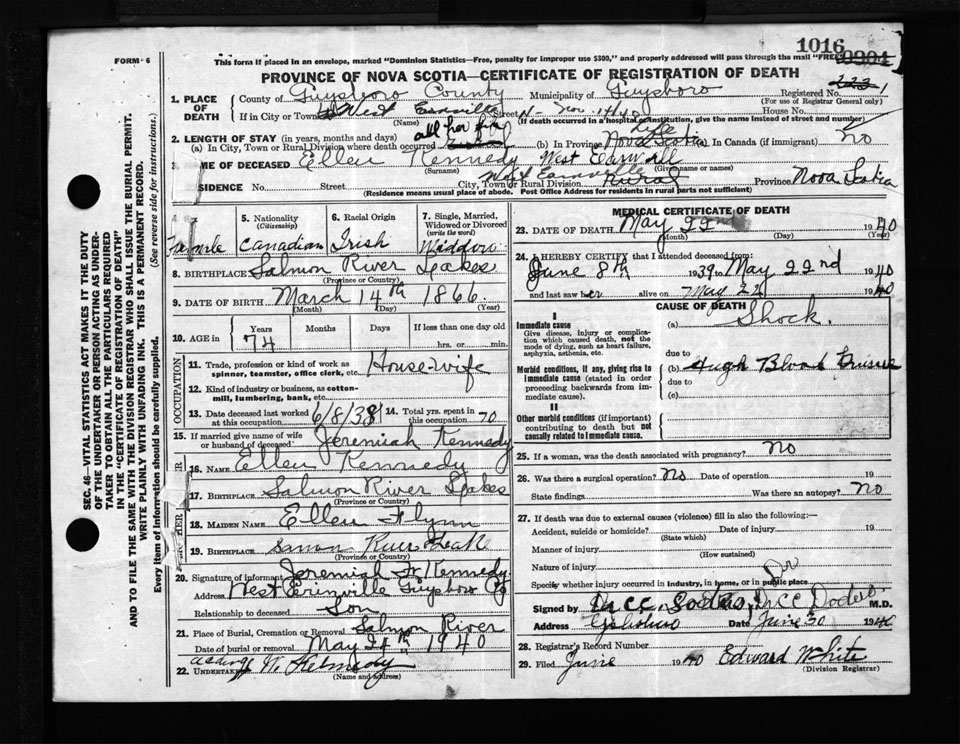 1016
FORM 6
This form if placed in an envelope, marked "Dominion Statistics—Free, penalty for improper use $300," and properly addressed will pass through the mail "FREE"
PROVINCE OF NOVA SCOTIA—CERTIFICATE OF REGISTRATION OF DEATH
1. PLACE OF DEATH
County of Guysboro County Municipality of Guysboro Registered No.
(For use of Registrar General only)
If in City or Town West Street House No.
(Name) (If death occurred in a hospital or institution, give the name instead of street and number)
2. LENGTH OF STAY (in years, months and days) all her life Life
(a) In City, Town or Rural Division where death occurred (b) In Province Nova Scotia (c) In Canada (if immigrant) no
3. NAME OF DECEASED Ellen Kennedy West
(Surname) (Given name or names)
SIDENCE No. Street West City, Town or Rural Division Rural Province Nova Scotia
(Residence means usual place of abode. Post Office Address for residents in rural parts not sufficient)
5. Nationality (Citizenship) Canadian
6. Racial Origin Irish
7. Single, Married, Widowed or Divorced (write the word) Widdow
8. BIRTHPLACE Salmon River Lakes
(Province or Country)
9. DATE OF BIRTH March 14th 1866
(Month) (Day) (Year)
10. AGE in Years 74 Months Days If less than one day old hrs. or min.
OCCUPATION
11. Trade, profession or kind of work as spinner, teamster, office clerk, etc. House-wife
12. Kind of industry or business, as cotton-mill, lumbering, bank, etc.
13. Date deceased last worked at this occupation 6/8/38
14. Total yrs. spent in this occupation 70
15. If married give name of wife or husband of deceased Jeremiah Kennedy
16. NAME Ellen Kennedy
17. BIRTHPLACE Salmon River Lakes
(Province or Country)
18. MAIDEN NAME Ellen Flynn
19. BIRTHPLACE River
(Province or Country)
20. Signature of informant Jeremiah Kennedy
Address West Guysboro Co
Relationship to deceased Son
21. Place of Burial, Cremation or Removal Salmon River
Date of burial or removal May 24th 1940
22. UNDERTAKER acting
(Name and address)
MEDICAL CERTIFICATE OF DEATH
23. DATE OF DEATH May 22nd 1940
(Month) (Day) (Year)
24. I HEREBY CERTIFY that I attended deceased from:
June 8th 1939 to May 22nd 1940
and last saw her alive on May 22 1940
CAUSE OF DEATH
I
Immediate cause
Give disease, injury or complication which caused death, not the mode of dying, such as heart failure, asphyxia, asthenia, etc.
(a) Shock.
due to
Morbid conditions, if any, giving rise to immediate cause (stated in order proceeding backwards from immediate cause).
(b)
due to
(c)
II
Other morbid conditions (if important) contributing to death but not causally related to immediate cause.
25. If a woman, was the death associated with pregnancy? No
26. Was there a surgical operation? No Date of operation 19
State findings Was there an autopsy? No
27. If death was due to external causes (violence) fill in also the following:—
Accident, suicide or homicide? Date of injury 19
(State which)
Manner of injury
(How sustained)
Nature of injury
Specify whether injury occurred in industry, in home, or in public place
Signed by Dr CC M.D.
Address Date June 30 1940
28. Registrar's Record Number
29. Filed June 1940 Edward White
(Division Registrar)
SEC. 46—VITAL STATISTICS ACT MAKES IT THE DUTY
OF THE UNDERTAKER OR PERSON ACTING AS UNDERTAKER TO OBTAIN ALL THE PARTICULARS REQUIRED
IN THE "CERTIFICATE OF REGISTRATION OF DEATH"
AND TO FILE THE SAME WITH THE DIVISION REGISTRAR WHO SHALL ISSUE THE BURIAL PERMIT.
WRITE PLAINLY WITH UNFADING INK. THIS IS A PERMANENT RECORD.
Every item of information should be carefully supplied. (See reverse side for instructions.)